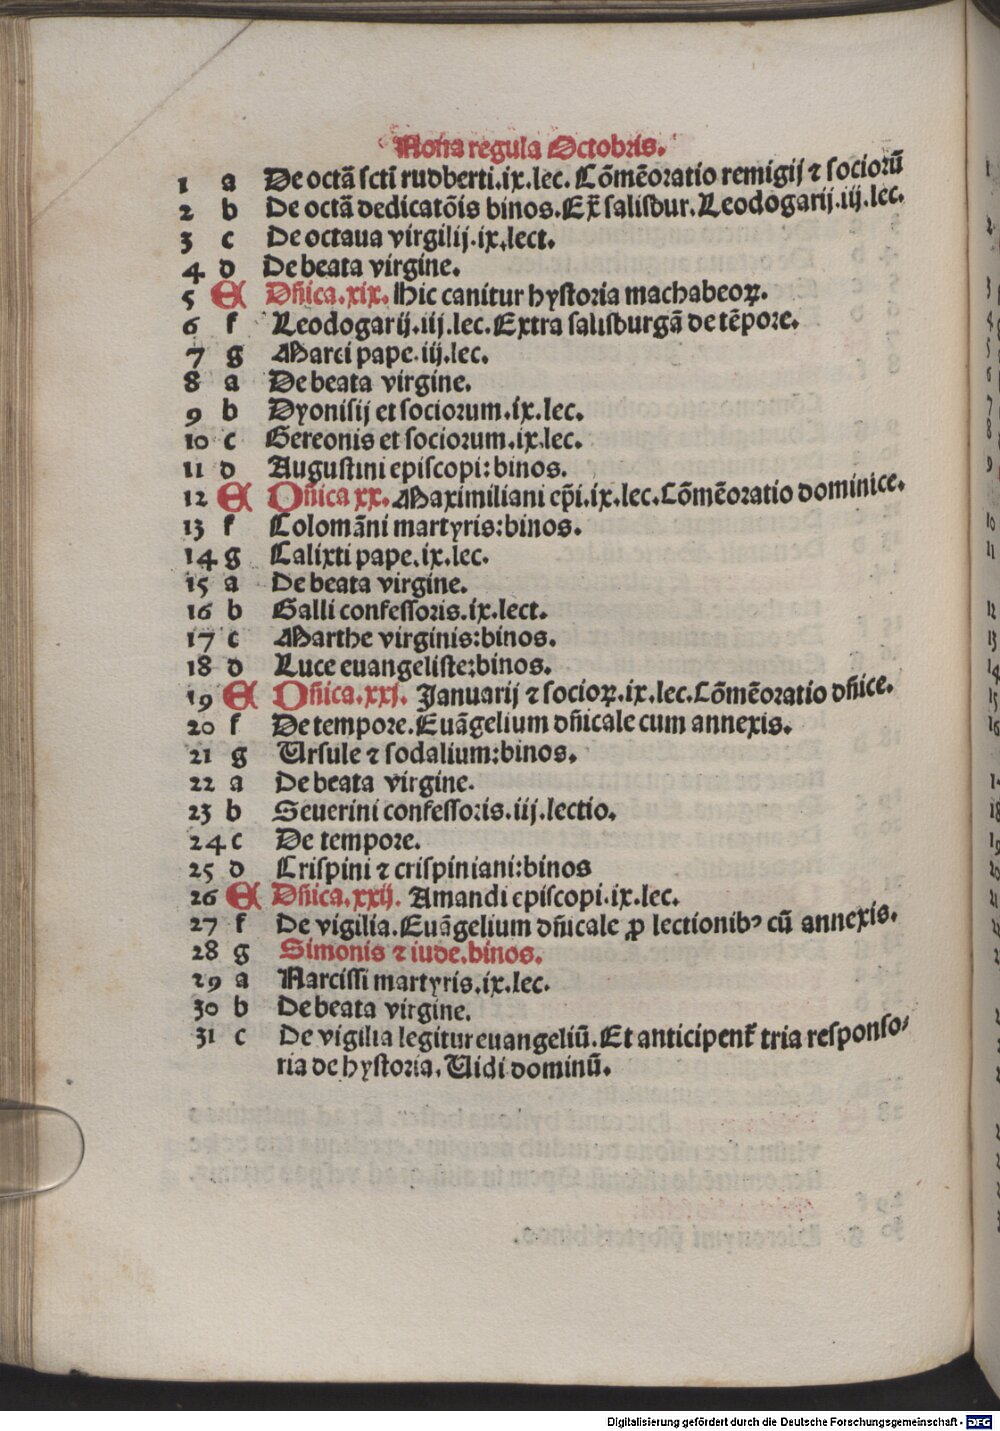 Nona regula Octobris.
1 a De octā scti rudberti.ix.lec. Cōmēoratio remigij ⁊ sociorū
2 b De octā dedicatōis binos.Ex̄ salisbur.Leodogarij.iij.lec.
3 c De octaua virgilij.ix.lect.
4 d De beata virgine.
5 E Dñica.xix. Hic canitur hystoria machabeoꝝ.
6 f Leodogarij.iij.lec.Extra salisburgā de tēpore.
7 g Marci pape.iij.lec.
8 a De beata virgine.
9 b Dyonisij et sociorum.ix.lec.
10 c Gereonis et sociorum.ix.lec.
11 d Augustini episcopi:binos.
12 E Dñica xx. Maximiliani ep̄i.ix.lec.Cōmēoratio dominice.
13 f Colomāni martyris:binos.
14 g Calixti pape.ix.lec.
15 a De beata virgine.
16 b Galli confessoris.ix.lect.
17 c Marthe virginis:binos.
18 d Luce euangeliste:binos.
19 E Dñica.xxj. Januarij ⁊ socioꝝ.ix.lec.Cōmēoratio dñice.
20 f De tempore.Euāgelium dñicale cum annexis.
21 g Ursule ⁊ sodalium:binos.
22 a De beata virgine.
23 b Seuerini confessoris.iij.lectio.
24 c De tempore.
25 d Crispini ⁊ crispiniani:binos
26 E Dñica.xxij. Amandi episcopi.ix.lec.
27 f De vigilia.Euāgelium dñicale ꝓ lectionibꝰ cū annexis.
28 g Simonis ⁊ iude.binos.
29 a Narcissi martyris.ix.lec.
30 b De beata virgine.
31 c De vigilia legitur euangeliū.Et anticipent̄ tria responso/
ria de hystoria. Uidi dominū.
Digitalisierung gefördert durch die Deutsche Forschungsgemeinschaft - DFG